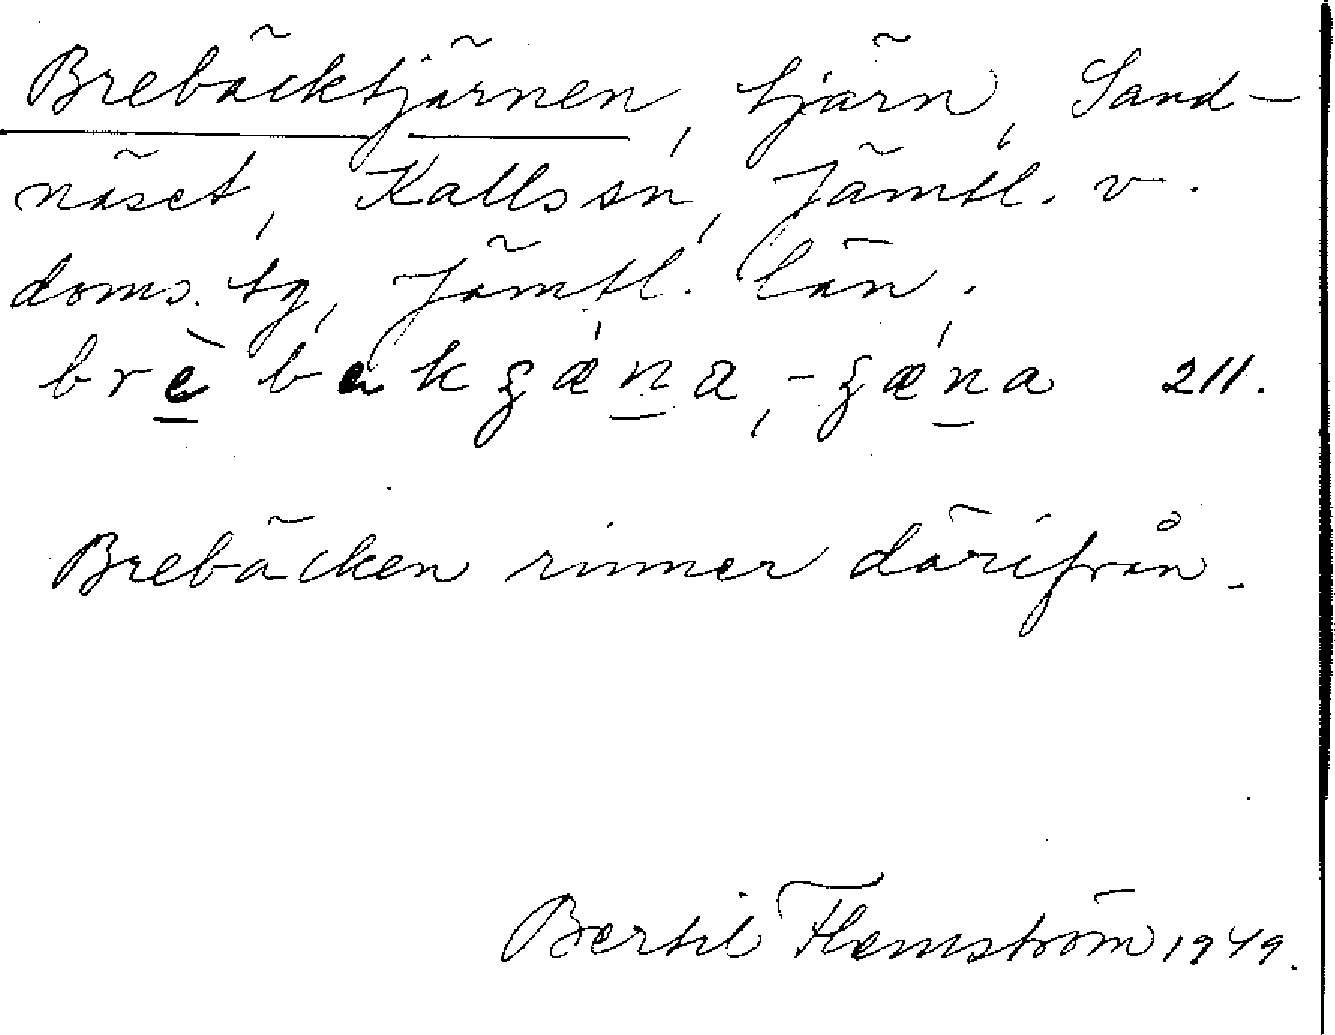 Brebäcktjärnen, tjärn, Sand-
näset, Kalls sn, Jämtl. v.
doms. tg, Jämtl. län.
211.
Brebäcken rinner därifrån.
Bertil Flemström 1949.